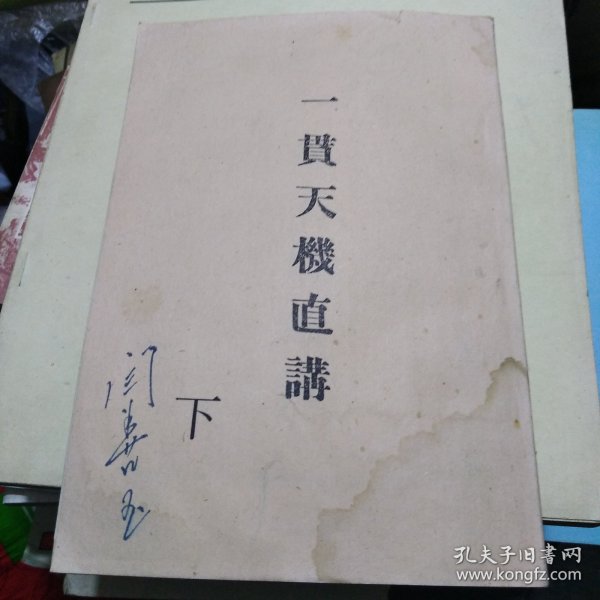 一貫天機直講
下
闫善玉
孔夫子旧書网
www.kongfz.com